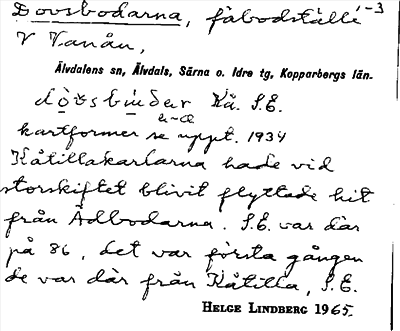 Dovsbodarna, fäbodställe 1-3
V Vanån,
Älvdalens sn, Älvdals, Särna o. Idre tg, Kopparbergs län.
Kå. S.E.
kartformer se uppt. 1934
Kåtillakarlarna hade vid
storskiftet blivit flyttade hit
från Ädbodarna. S.E. var där
på 86, det var första gången
de var där från Kåtilla, S.E.
HELGE LINDBERG 1965.